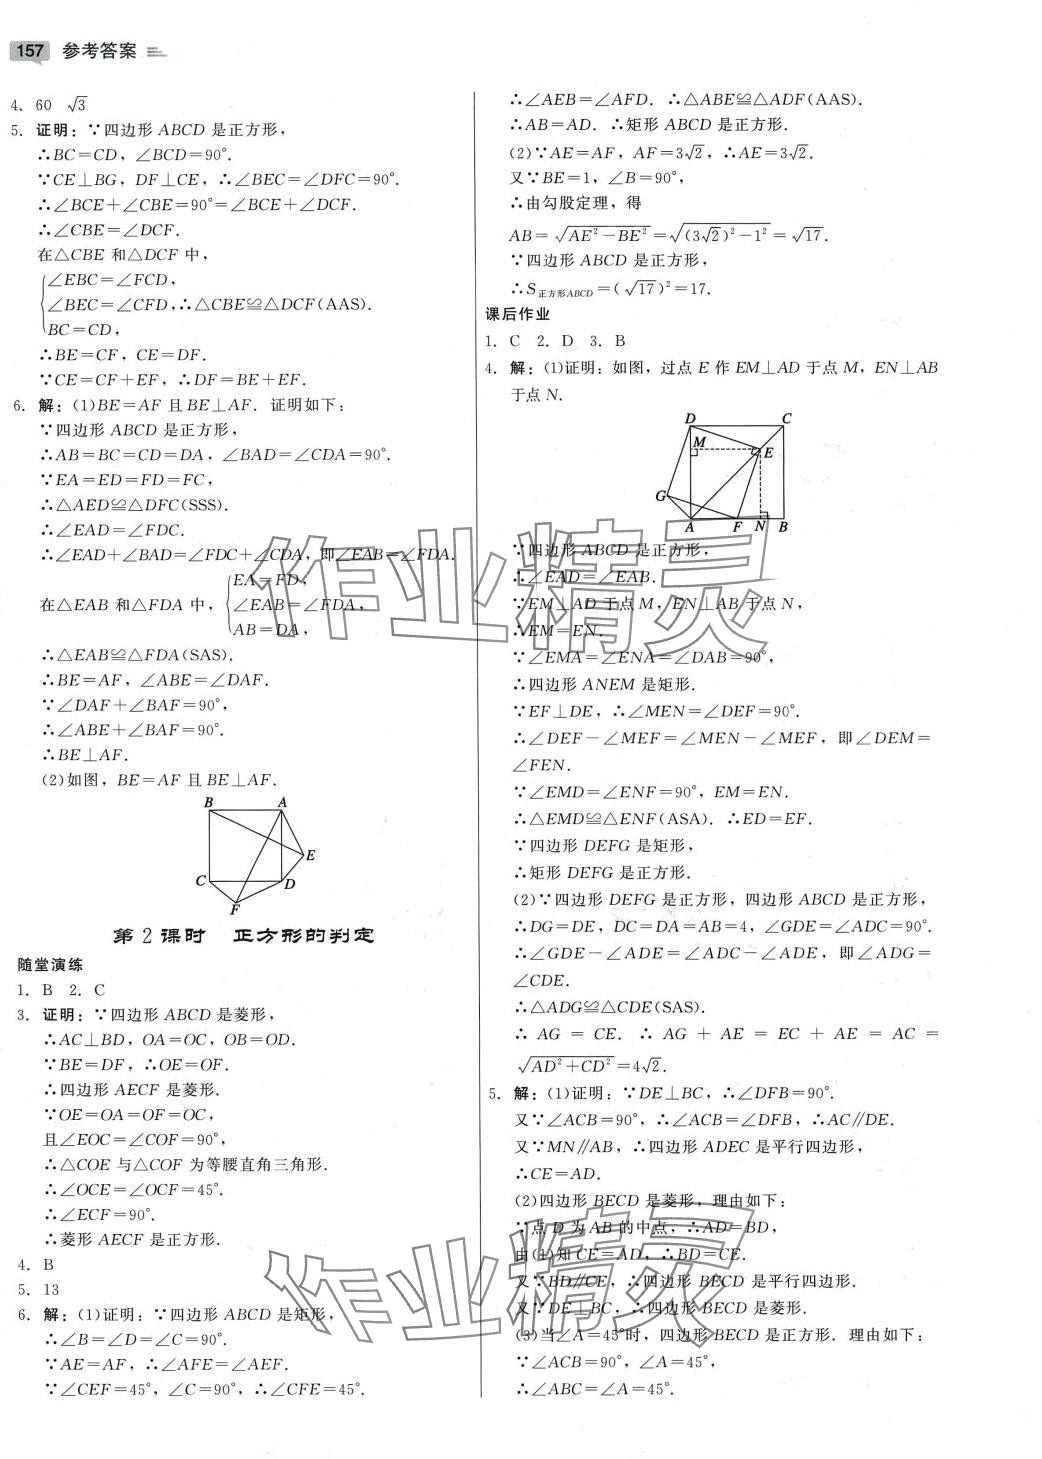 157 参考答案
4. 60 √3
5. 证明：∵四边形 ABCD 是正方形，
∴BC=CD，∠BCD=90°.
∵CE⊥BG，DF⊥CE，∴∠BEC=∠DFC=90°.
∴∠BCE+∠CBE=90°=∠BCE+∠DCF.
∴∠CBE=∠DCF.
在△CBE 和△DCF 中，
∠EBC=∠FCD，
∠BEC=∠CFD，∴△CBE≌△DCF(AAS).
BC=CD，
∴BE=CF，CE=DF.
∵CE=CF+EF，∴DF=BE+EF.
6. 解：(1)BE=AF 且 BE⊥AF. 证明如下：
∵四边形 ABCD 是正方形，
∴AB=BC=CD=DA，∠BAD=∠CDA=90°.
∵EA=ED=FD=FC，
∴△AED≌△DFC(SSS).
∴∠EAD=∠FDC.
∴∠EAD+∠BAD=∠FDC+∠CDA，即∠EAB=∠FDA.
在△EAB 和△FDA 中，
EA=FD，
∠EAB=∠FDA，
AB=DA，
∴△EAB≌△FDA(SAS).
∴BE=AF，∠ABE=∠DAF.
∵∠DAF+∠BAF=90°，
∴∠ABE+∠BAF=90°.
∴BE⊥AF.
(2)如图，BE=AF 且 BE⊥AF.
B A
E
C D
F
第 2 课时 正方形的判定
随堂演练
1. B 2. C
3. 证明：∵四边形 ABCD 是菱形，
∴AC⊥BD，OA=OC，OB=OD.
∵BE=DF，∴OE=OF.
∴四边形 AECF 是菱形.
∵OE=OA=OF=OC，
且∠EOC=∠COF=90°，
∴△COE 与△COF 为等腰直角三角形.
∴∠OCE=∠OCF=45°.
∴∠ECF=90°.
∴菱形 AECF 是正方形.
4. B
5. 13
6. 解：(1)证明：∵四边形 ABCD 是矩形，
∴∠B=∠D=∠C=90°.
∵AE=AF，∴∠AFE=∠AEF.
∵∠CEF=45°，∠C=90°，∴∠CFE=45°.
∴∠AEB=∠AFD. ∴△ABE≌△ADF(AAS).
∴AB=AD. ∴矩形 ABCD 是正方形.
(2)∵AE=AF，AF=3√2，∴AE=3√2.
又∵BE=1，∠B=90°，
∴由勾股定理，得
AB=√(AE²−BE²)=√((3√2)²−1²)=√17.
∵四边形 ABCD 是正方形，
∴S正方形ABCD=(√17)²=17.
课后作业
1. C 2. D 3. B
4. 解：(1)证明：如图，过点 E 作 EM⊥AD 于点 M，EN⊥AB
于点 N.
D C
M
E
G
A F N B
∵四边形 ABCD 是正方形，
∴∠EAD=∠EAB.
∵EM⊥AD 于点 M，EN⊥AB 于点 N，
∴EM=EN.
∵∠EMA=∠ENA=∠DAB=90°，
∴四边形 ANEM 是矩形.
∵EF⊥DE，∴∠MEN=∠DEF=90°.
∴∠DEF−∠MEF=∠MEN−∠MEF，即∠DEM=
∠FEN.
∵∠EMD=∠ENF=90°，EM=EN.
∴△EMD≌△ENF(ASA). ∴ED=EF.
∵四边形 DEFG 是矩形，
∴矩形 DEFG 是正方形.
(2)∵四边形 DEFG 是正方形，四边形 ABCD 是正方形，
∴DG=DE，DC=DA=AB=4，∠GDE=∠ADC=90°.
∴∠GDE−∠ADE=∠ADC−∠ADE，即∠ADG=
∠CDE.
∴△ADG≌△CDE(SAS).
∴AG=CE. ∴AG+AE=EC+AE=AC=
√(AD²+CD²)=4√2.
5. 解：(1)证明：∵DE⊥BC，∴∠DFB=90°.
又∵∠ACB=90°，∴∠ACB=∠DFB，∴AC∥DE.
又∵MN∥AB，∴四边形 ADEC 是平行四边形，
∴CE=AD.
(2)四边形 BECD 是菱形，理由如下：
∵点 D 为 AB 的中点，∴AD=BD，
由(1)知 CE=AD，∴BD=CE.
又∵BD∥CE，∴四边形 BECD 是平行四边形.
又∵DE⊥BC，∴四边形 BECD 是菱形.
(3)当∠A=45°时，四边形 BECD 是正方形. 理由如下：
∵∠ACB=90°，∠A=45°，
∴∠ABC=∠A=45°.
作业精灵
作业精灵